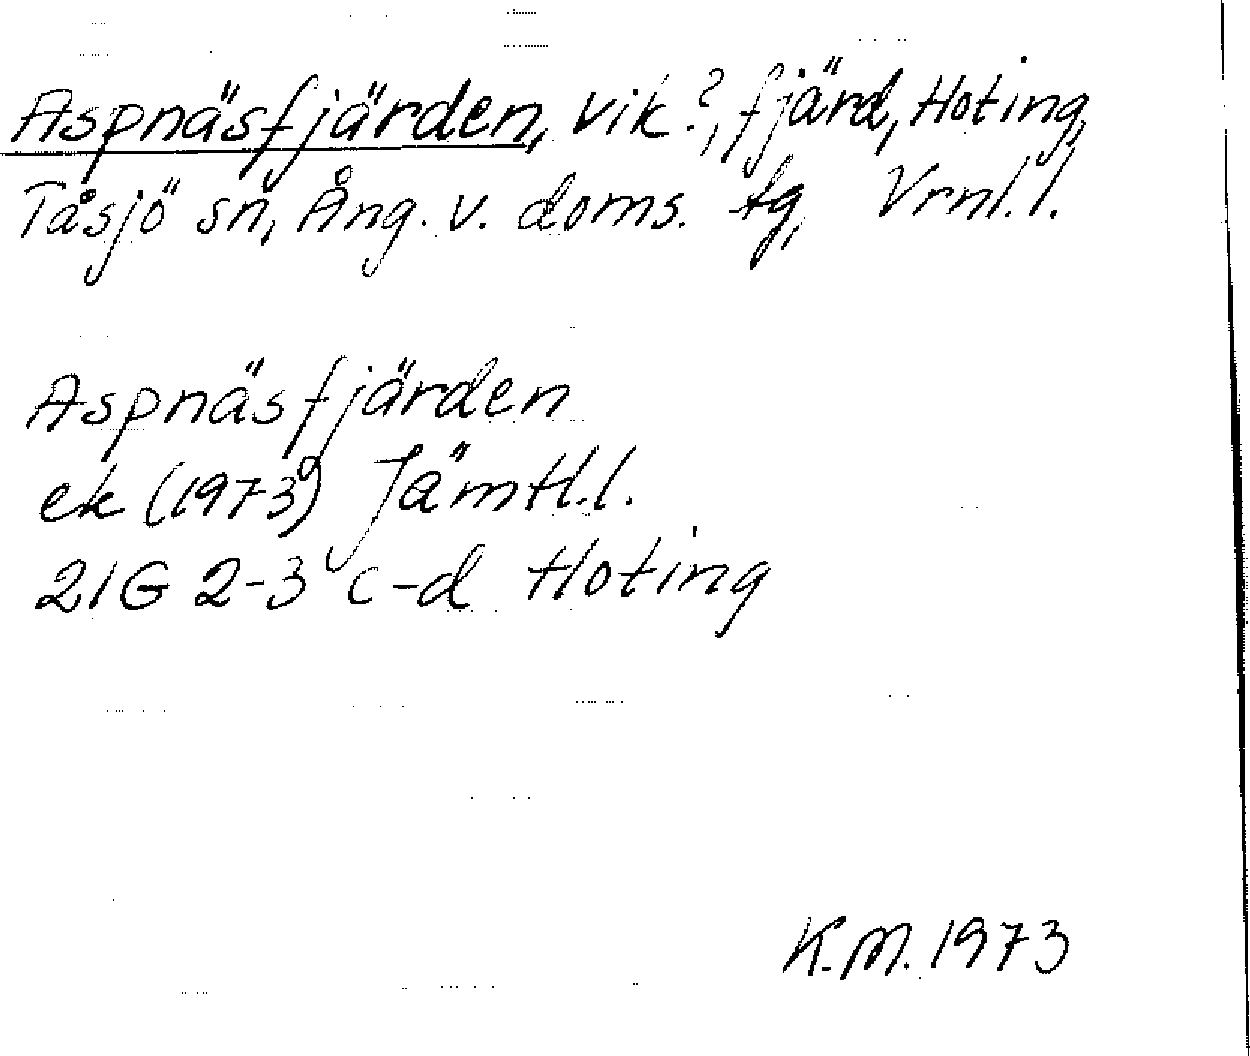 Aspnäsfjärden, vik?, fjärd, Hoting,
Tåsjö sn, Ång. v. doms. tg, Vrnl.l.
Aspnäsfjärden
ek (1973) Jämtl.l.
21G 2-3 c-d Hoting
K.M. 1973